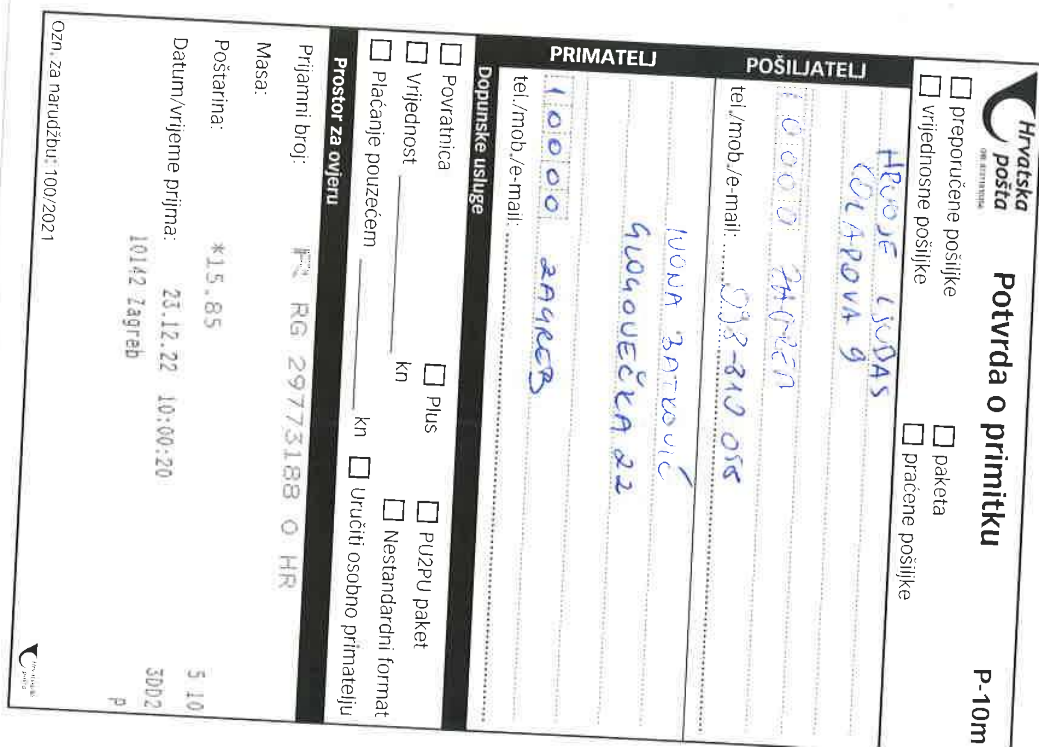 Hrvatska
pošta
Potvrda o primitku
P-10m
☐ preporučene pošiljke
☐ paketa
☐ vrijednosne pošiljke
☐ praćene pošiljke
POŠILJATELJ
HRVOJE LJUDAS
9
10000 ZAGREB
tel./mob./e-mail: 098-810 058
PRIMATELJ
IVONA BATKOVIĆ
GLOGOVEČKA 22
10000 ZAGREB
tel./mob./e-mail:
Dopunske usluge
☐ Povratnica
☐ Plus
☐ PU2PU paket
☐ Vrijednost kn
☐ Nestandardni format
☐ Plaćanje pouzećem kn
☐ Uručiti osobno primatelju
Prostor za ovjeru
Prijamni broj: RG 29773188 0 HR
Masa:
Poštarina: *15.85
Datum/vrijeme prijma: 23.12.22 10:00:20
5 10
10142 Zagreb
3DD2
P
Ozn. za narudžbu: 100/2021
Hrvatska
pošta